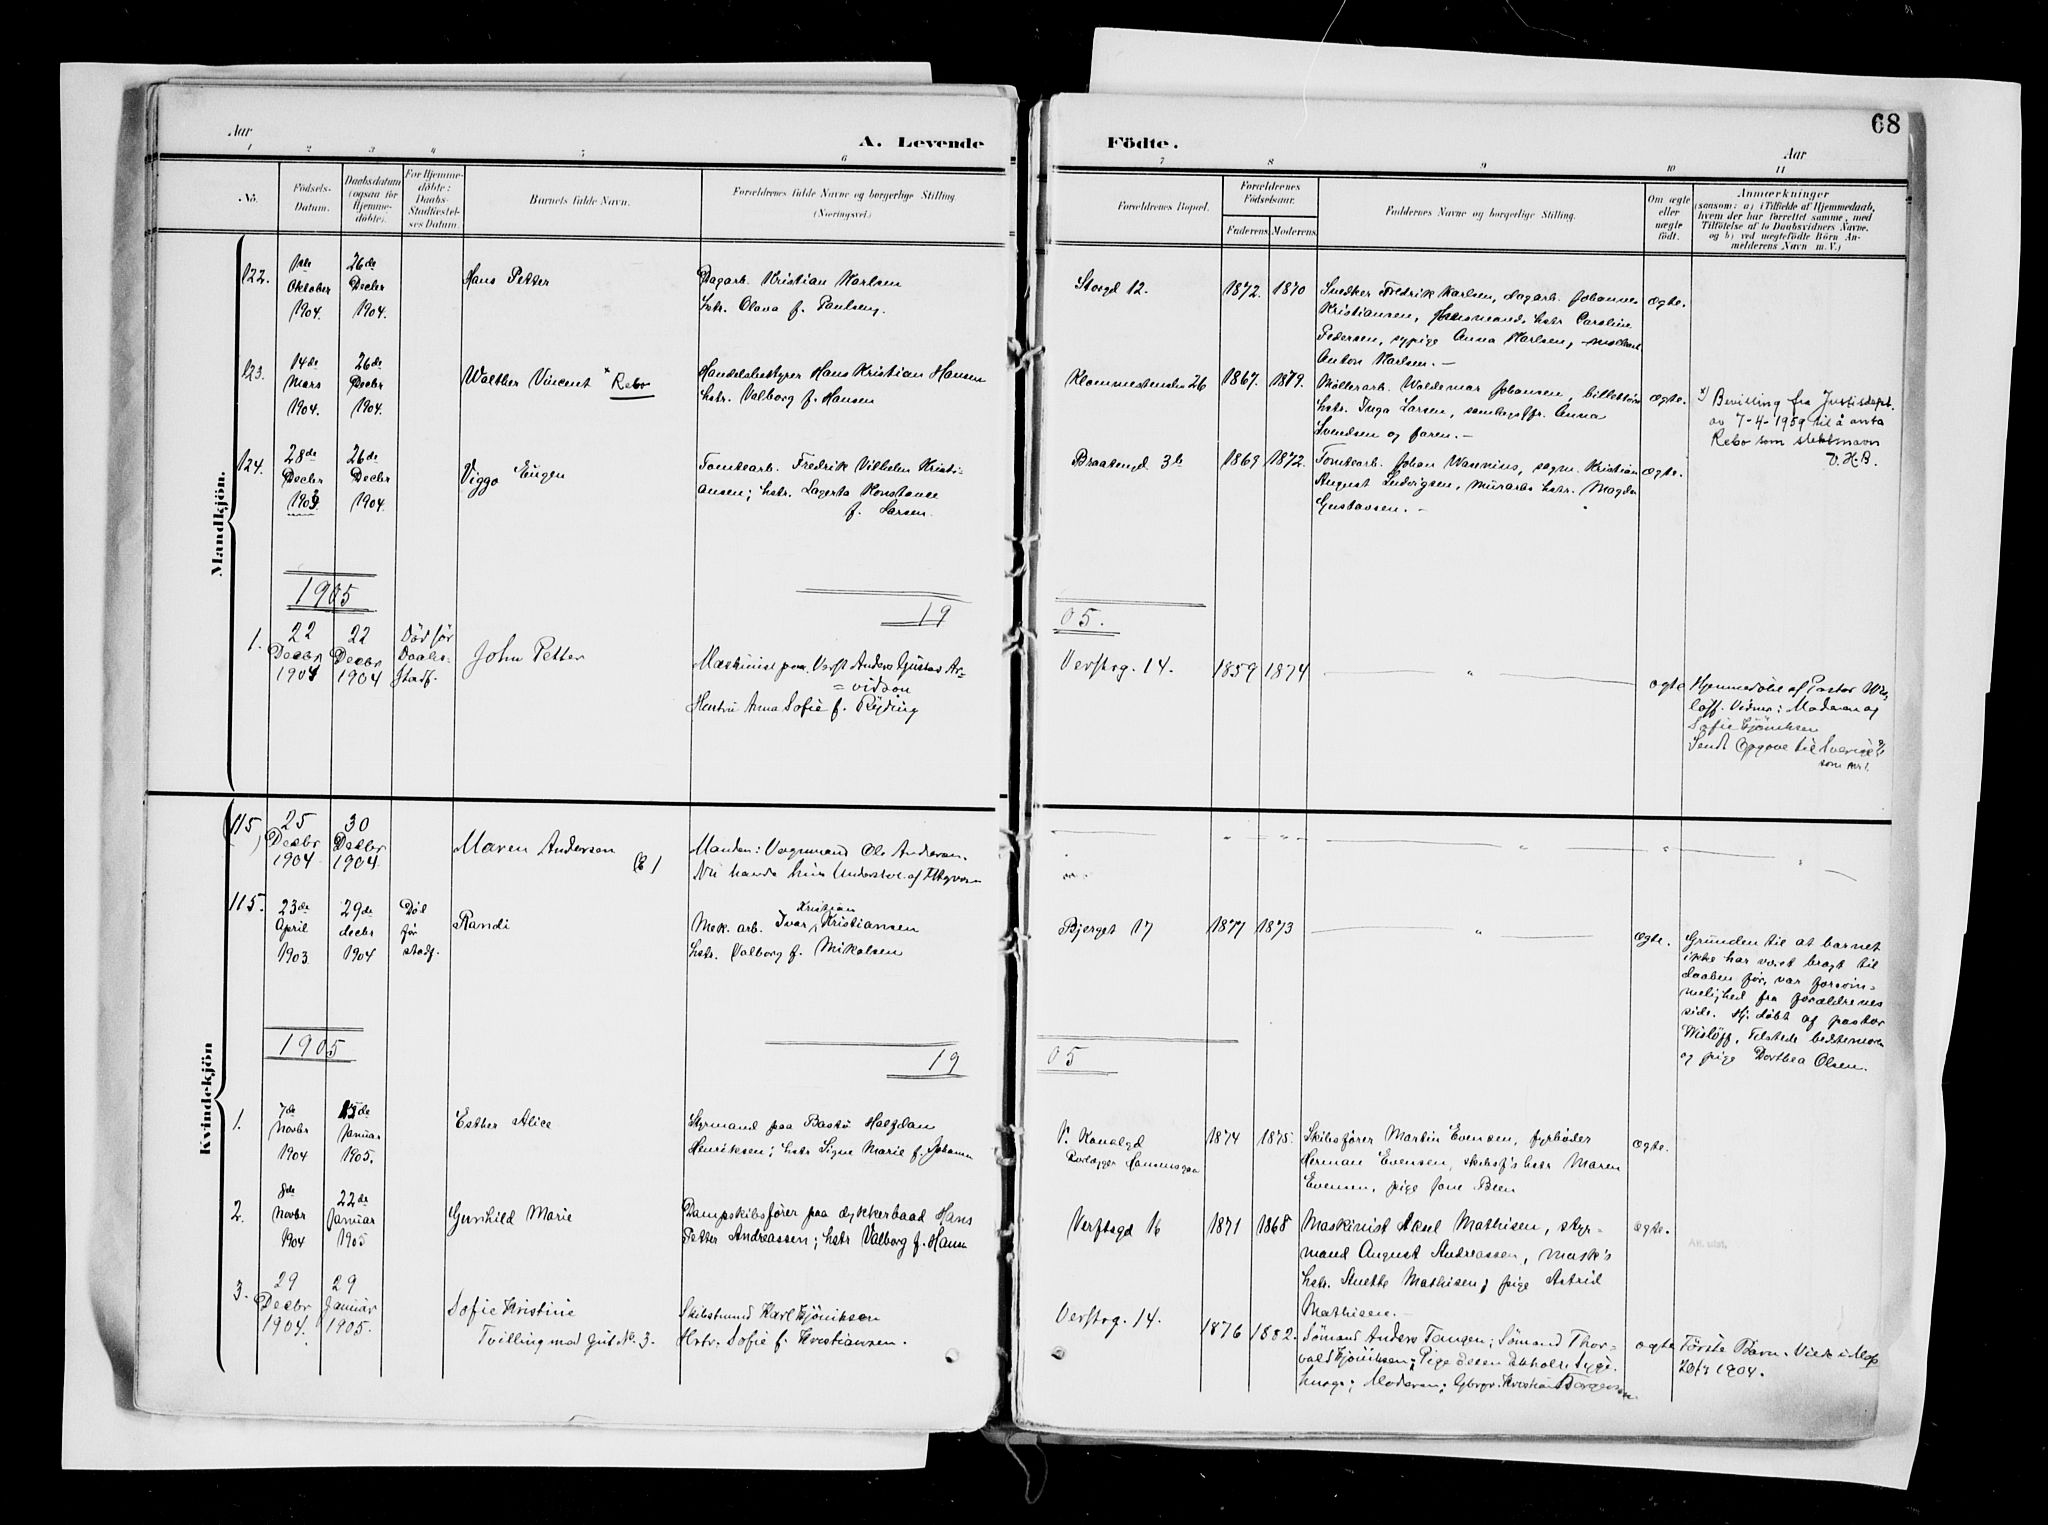 68
Aar
A. Levende
Födte.
Aar
1 2 3 4 5 6 7 8 9 10 11
No.
Födsels-
Datum.
Daabsdatum
(ogsaa for
Hjemme-
döbte).
For Hjemme-
döbte:
Daabs-
Stadfæstel-
ses Datum.
Barnets fulde Navn.
Forældrenes fulde Navne og borgerlige Stilling
(Næringsvei.)
Forældrenes Bopæl.
Forældrenes
Födselsaar.
Faderens. Moderens.
Faddernes Navne og borgerlige Stilling.
Om ægte
eller
uægte
født.
Anmærkninger
(saasom: a) i Tilfælde af Hjemmedaab,
hvem der har forrettet samme, med
Tilföielse af to Daabsvidners Navne,
og b) ved uægtefödte Börn An-
melderens Navn m. V.)
Mandkjön.
122.
1ste
Oktober
1904.
26de
Decbr
1904.
Hans Petter
Dagarb. Kristian Karlsen
hstr. Olava f. Paulsen.
Storgd 12.
1872. 1870
Snedker Fredrik Karlsen, dagarb. Johannes
Kristiansen, hstr Caroline
Pedersen, sypige Anna Karlsen,
Anton Karlsen. —
ægte.
123.
14de
Mars
1904.
26de
Decbr
1904.
Walther Vincent × Rebo
Handelsbestyrer Hans Kristian Hansen
hstr. Valborg f. Hansen
26
1867. 1879.
Möllerarb. Waldemar Johansen, billettörs
hstr. Inga Larsen, Anna
Svendsen og faren. —
ægte.
×) Bevilling fra Justisdept.
av 7-4-1959 til å anta
Rebo som slektsnavn
V.H.B.
124.
28de
Decbr
1903.
26de
Decbr
1904.
Viggo Eugen
Tomtearb. Fredrik Vilhelm Kristi-
ansen; hstr. Lagerta Konstance
f. Larsen.
Braatengd 3b
1869 1872.
Tomtearb. Johan Wasenius, sagm. Kristian
August Ludvigsen, murarbs hstr. Magda
Gustavsen. —
ægte.
1905
19
05.
1.
22
Decbr
1904
22
Decbr
1904
Död før
Daabs-
stadf.
John Petter
Maskinist paa Verft Anders Gustav Ar-
= vidson
Hustru Anna Sofie f. Ryding
Verftsg. 14.
1859 1874
— " —
ægte
Hjemmedöbt af Pastor Wis-
löff. Vidner: Moderen og
Sofie Kjöniksen
Sendt Opgave til Sverige
som No 1.
Kvindekjön
(115)
25
Decbr
1904
30
Decbr
1904.
Maren Andersen
Manden: Vognmand Ole Andersen.
Nu havde hun Understöt. af
115.
23de
April
1903
29de
decbr
1904
Död
før
stadf.
Randi
Kristian
Mek. arb. Ivar Kristiansen
hstr. Valborg f. Mikalsen
Bjerget 17
1877 1873
— " —
ægte.
Grunden til at barnet
ikke har været bragt til
daaben før, var forsöm-
melighed fra forældrenes
side. Hj. döbt af pastor
Wislöff, Tilstede bedstemoren
og pige Dorthea Olsen.
1905
19
05
1.
7de
Novbr
1904
15de
Januar
1905.
Esther Alice
Styrmand paa Bastö Halfdan
Henriksen; hstr Signe Marie f. Johann
V. Kanalgd
Hansensgaa
1874 1875.
Skibsfører Martin Evensen, fyrböder
Herman Evensen, skibsf's hstr Maren
Evensen, pige Jane Been
ægte.
2.
8de
Novbr
1904
22de
Januar
1905
Gunhild Marie
Dampskibsfører paa dykkerbaad Hans
Petter Andreassen; hstr Valborg f. Hansen
Verftsgd 16
1871 1868
Maskinist Aksel Mathisen, styr-
mand August Andreassen, mask's
hstr. Anette Mathisen, pige Astrid
Mathisen. —
ægte.
3.
29
Decbr
1904.
29
Januar
1905.
Sofie Kristine
Tvilling med Gut No. 3.
Skibstmd Karl Kjöniksen
Hstr. Sofie f. Kristiansen.
Verftsg. 14.
1876 1882.
Sömand Anders Tangen; Sömand Thor-
vald Kjöniksen; Pige
Moderen; Kristian Torgersen
ægte
Første Barn. Viede i Mos
1904.